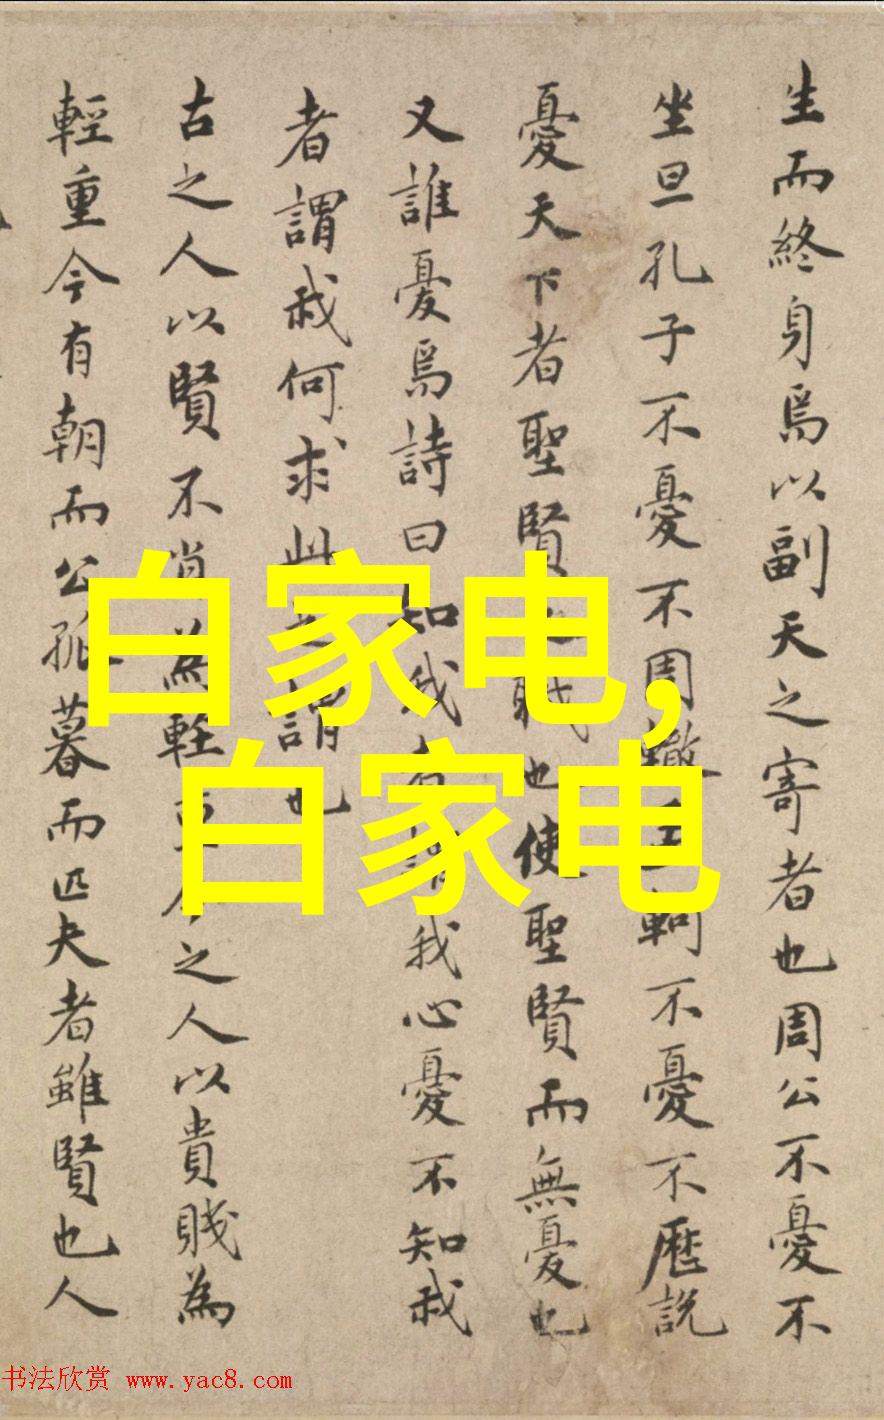 生而終身焉以副天之寄者也周公不憂不
坐旦孔子不憂不周轍孟軻不憂不歷說
憂天下者聖賢之職也使聖賢而無憂也
又誰憂焉詩曰知我者謂我心憂不知我
者謂我何求此之謂也
古之人以賢不肖為輕重今之人以貴賤為
輕重今有朝而公孤暮而匹夫者雖賢也人
白家电,
白家电
书法欣赏 www.yac8.com